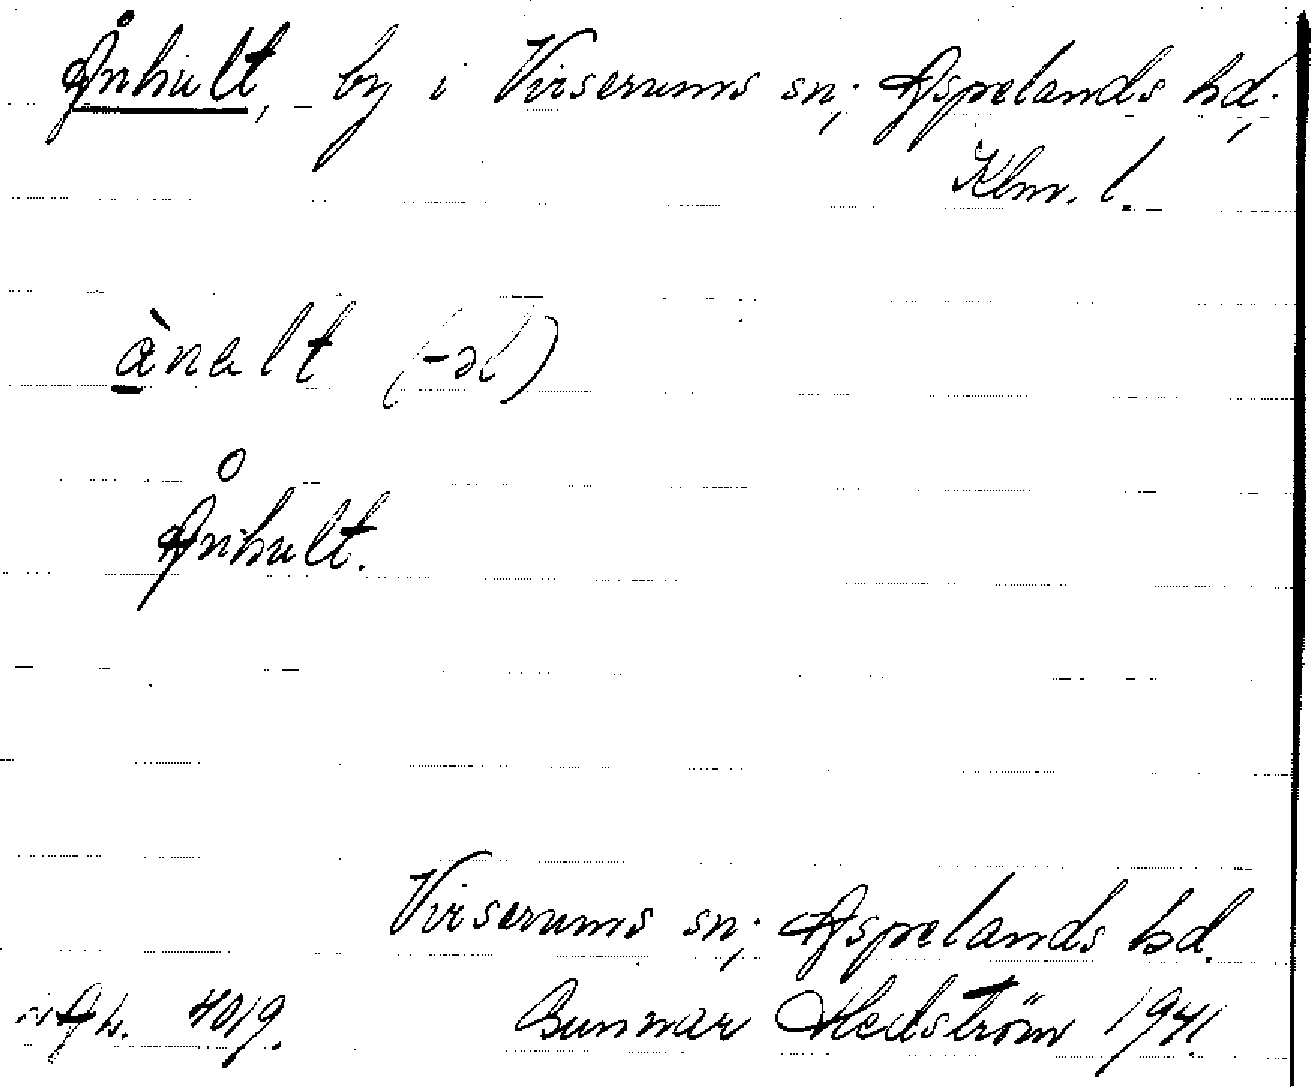 Ånhult, by i Virserums sn; Aspelands hd;
Klm. l.
ànalt (-əl)
Ånhult.
Virserums sn; Aspelands hd.
4019. Gunnar Hedström 1941